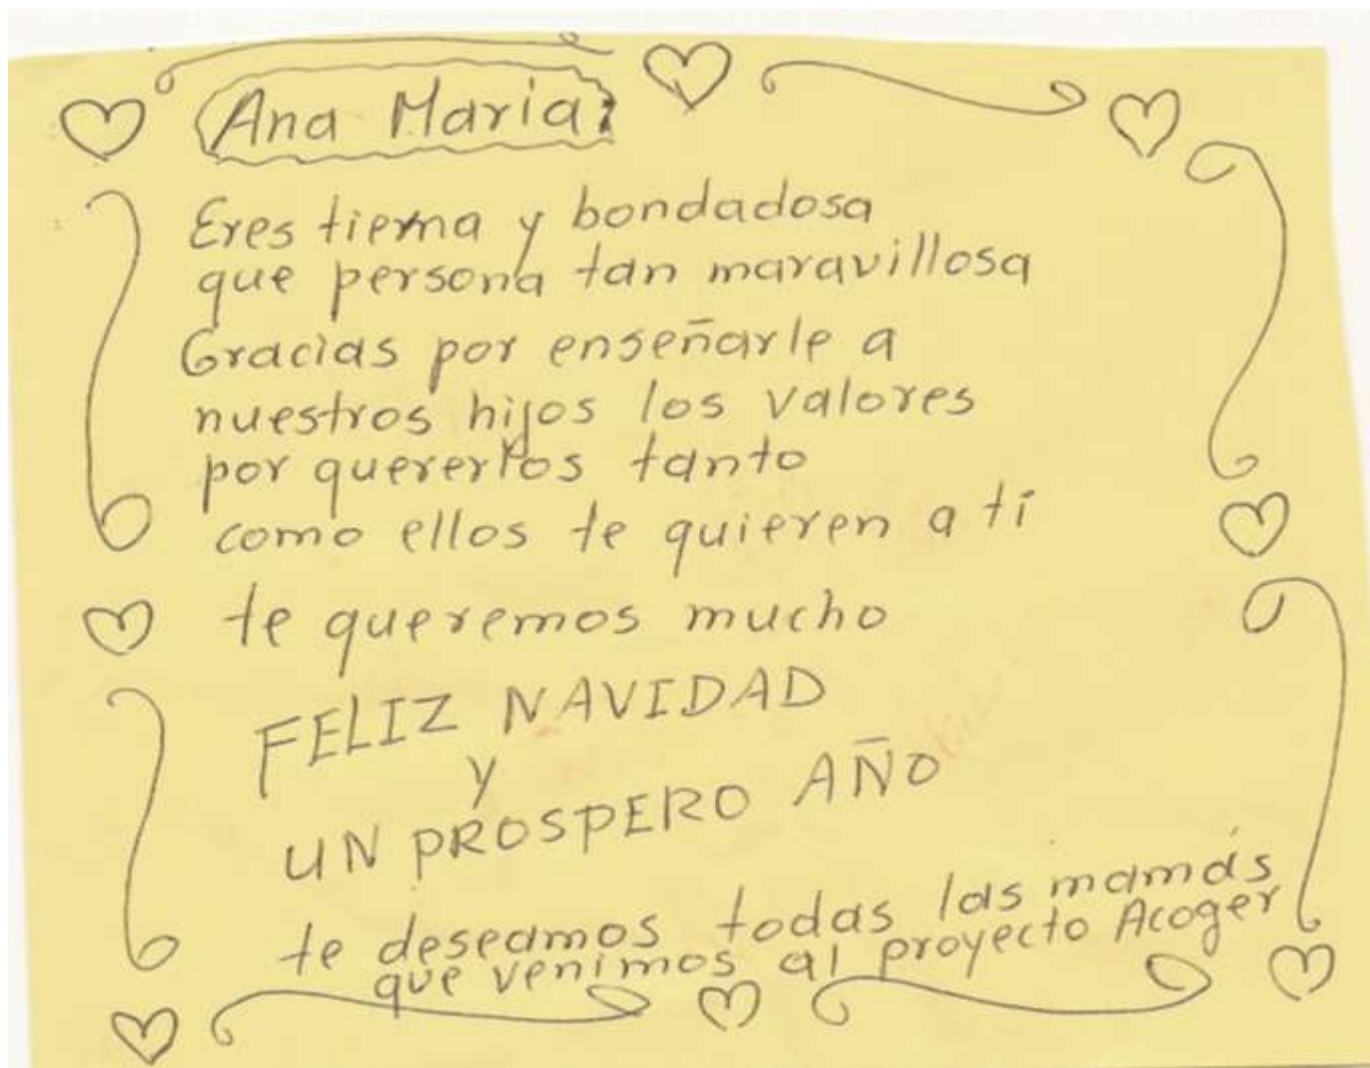 Ana Maria:
Eres tierna y bondadosa
que persona tan maravillosa
Gracias por enseñarle a
nuestros hijos los valores
por quererlos tanto
como ellos te quieren a tí
te queremos mucho
FELIZ NAVIDAD
y
UN PROSPERO AÑO
te deseamos todas las mamás
que venimos al proyecto Acoger